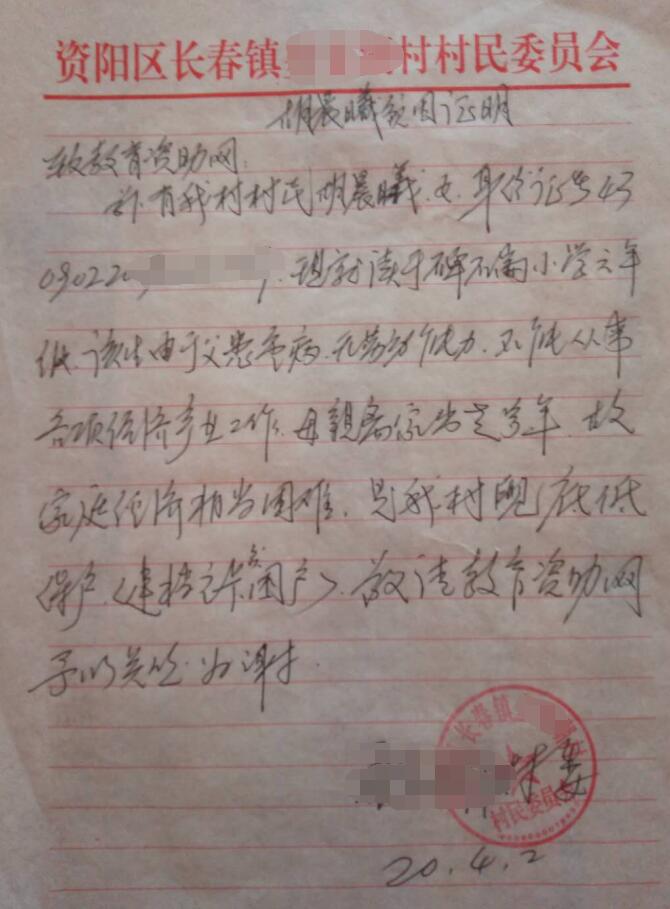 资阳区长春镇 村村民委员会
胡晨曦贫困证明
致教育资助网:
兹有我村村民胡晨曦.女.身份证号43
09022 现就读于碑石 小学六年
级.该生由于父患 病.无劳动能力.不能从事
各项经济产业工作.母亲离家出走多年.故
家庭经济相当困难.是我村 低
保户.(建档立卡贫困户).敬请教育资助网
予以关照.为谢!
长春镇
村民委员会
村委
20.4.2